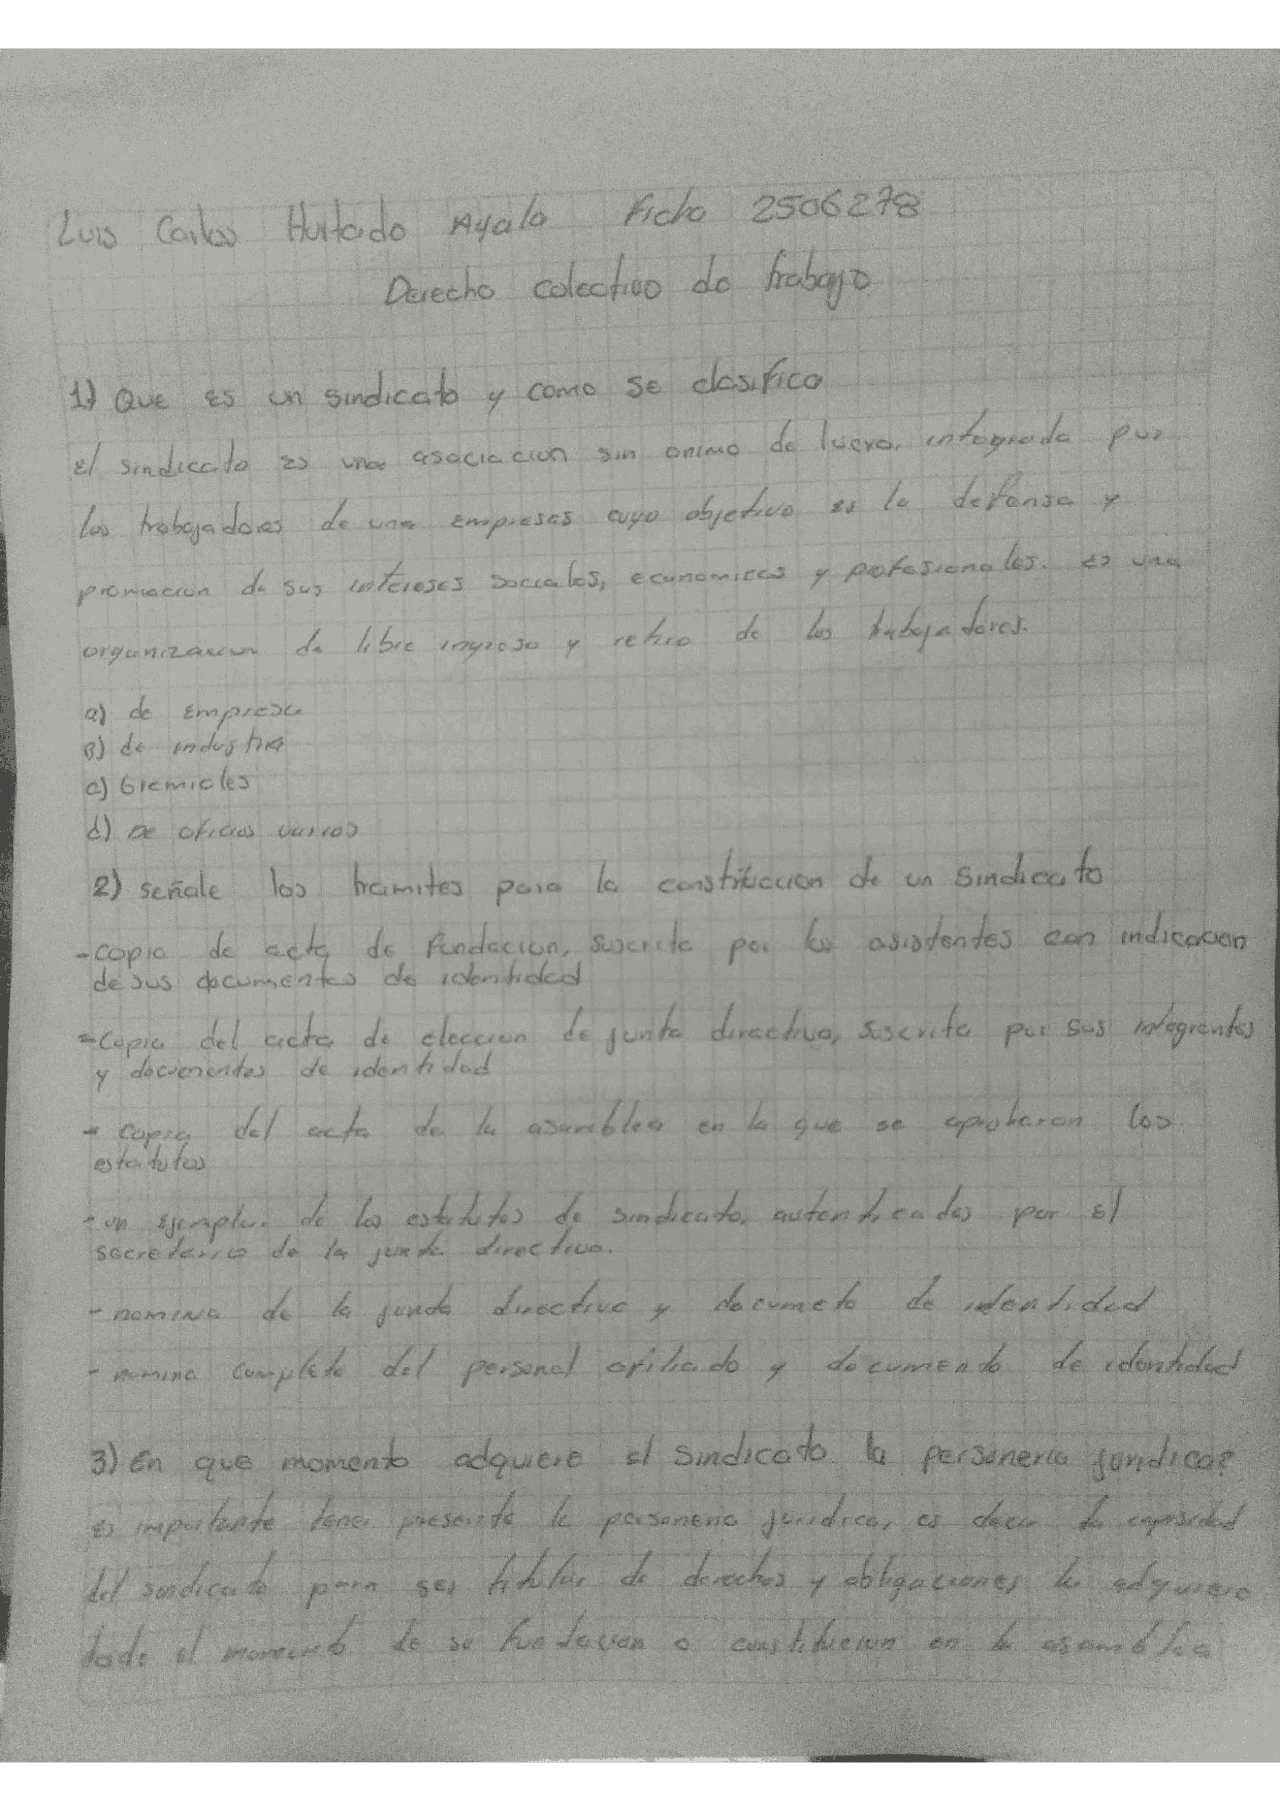 Luis Carlos Hurtado Ayala Ficha 2506278
Derecho colectivo de trabajo
1) Que es un sindicato y como se clasifica
el sindicato es una asociacion sin animo de lucro, integrada por
los trabajadores de una empresas cuyo objetivo es la defensa y
promocion de sus intereses sociales, economicos y profesionales. es una
organizacion de libre ingreso y retiro de los trabajadores.
a) de empresa
B) de industria
c) Gremiales
d) De oficios varios
2) señale los tramites para la constitucion de un sindicato
- copia de acta de fundacion, suscrita por los asistentes con indicacion
de sus documentos de identidad
- copia del acta de eleccion de junta directiva, suscrita por sus integrantes
y documentos de identidad
- copia del acta de la asamblea en la que se aprobaron los
estatutos
- un ejemplar de los estatutos de sindicato, autenticados por el
secretario de la junta directiva.
- nomina de la junta directiva y documeto de identidad
- nomina completa del personal afiliado y documento de identidad
3) En que momento adquiere el sindicato la personeria juridica?
es importante tener presente la personeria juridica, es decir la capacidad
del sindicato para ser titular de derechos y obligaciones la adquiere
desde el momento de su fundacion o constitucion en la asamblea